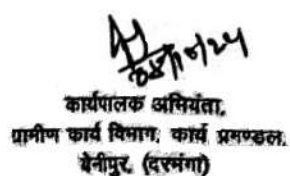 08/10/24
कार्यपालक अभियंता,
ग्रामीण कार्य विभाग, कार्य प्रमण्डल,
बेनीपुर, (दरभंगा)